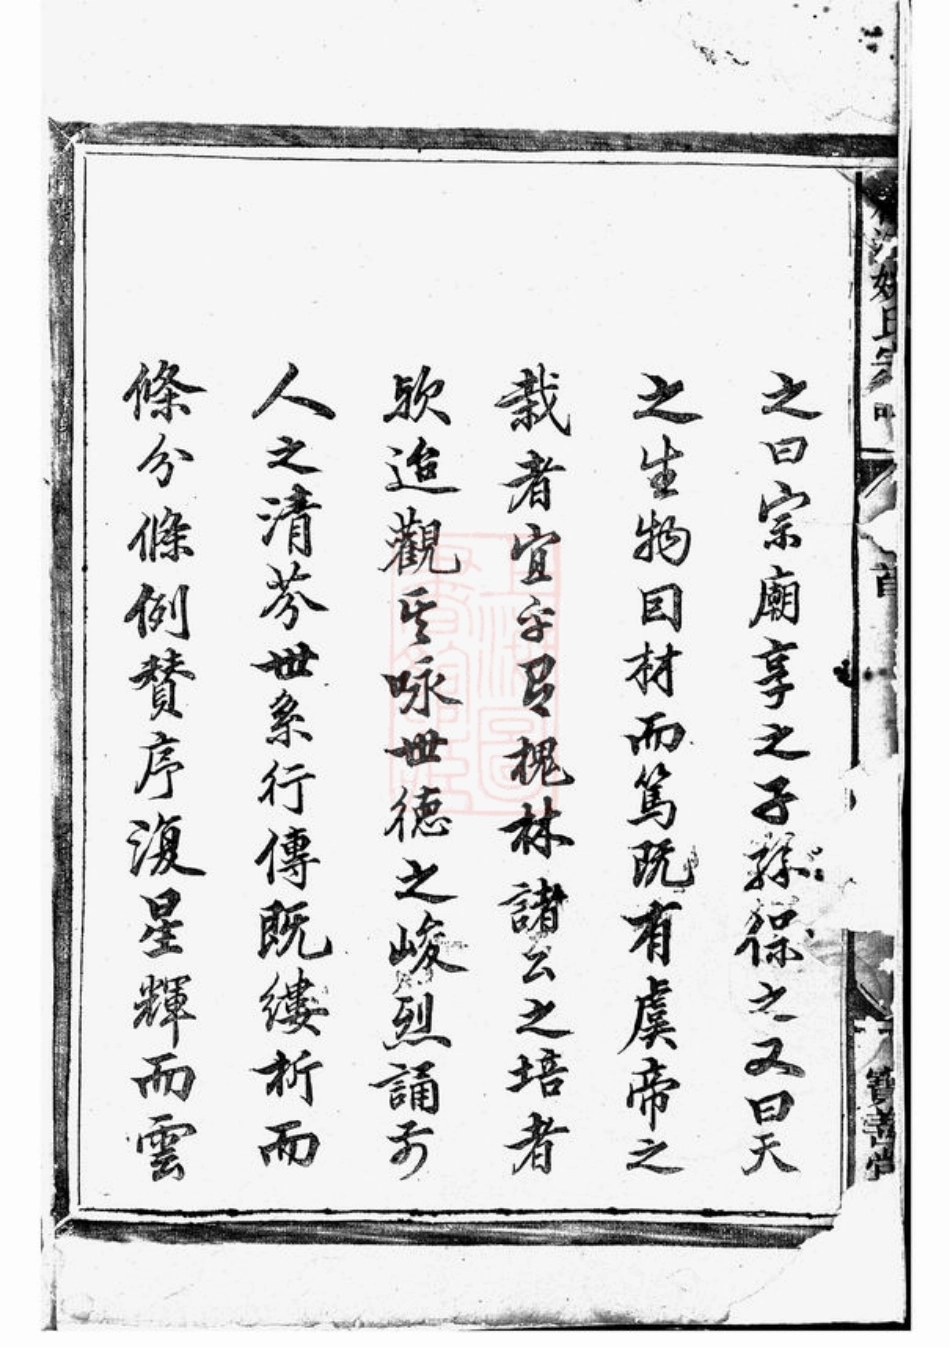 之曰宗廟享之子孫保之又曰天
之生物囙材而篤既有虞帝之
栽者宜乎有槐林諸公之培者
欤迨觀其咏世德之峻烈誦前
人之清芬世系行傳既縷析而
條分條例贊序復星輝而雲
姚氏宗
首
寶善堂